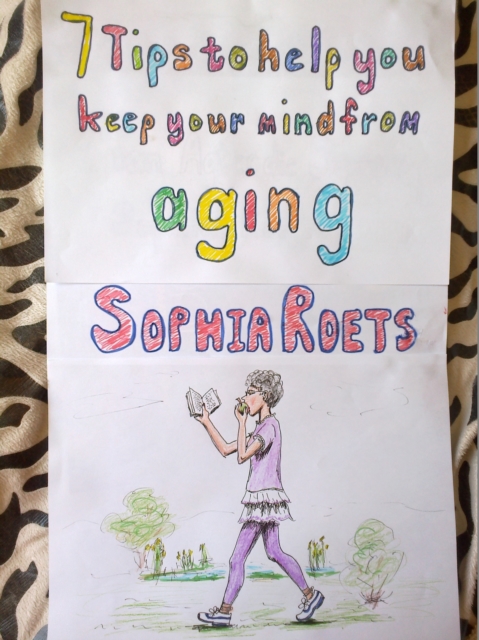 7 Tips to help you
keep your mind from
aging
SOPHIA ROETS